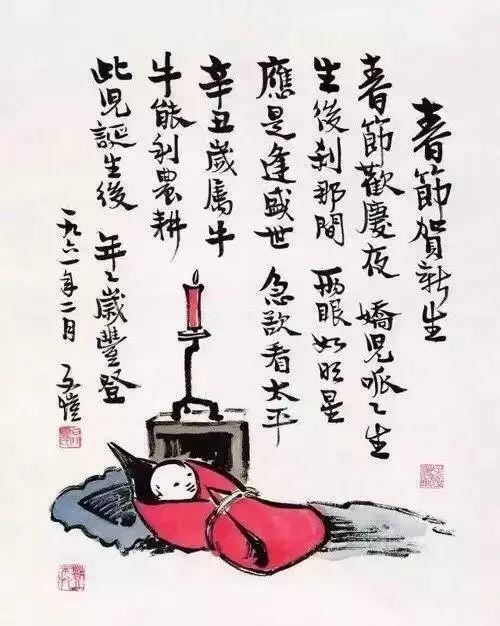 春節賀新生
春節歡慶夜 嬌兒呱〻生
生後刹那間 兩眼如旺星
應是逢盛世 急欲看太平
辛丑歲屬牛
牛能利農耕
此兒誕生後 年〻歲豐登
一九六一年二月 子愷